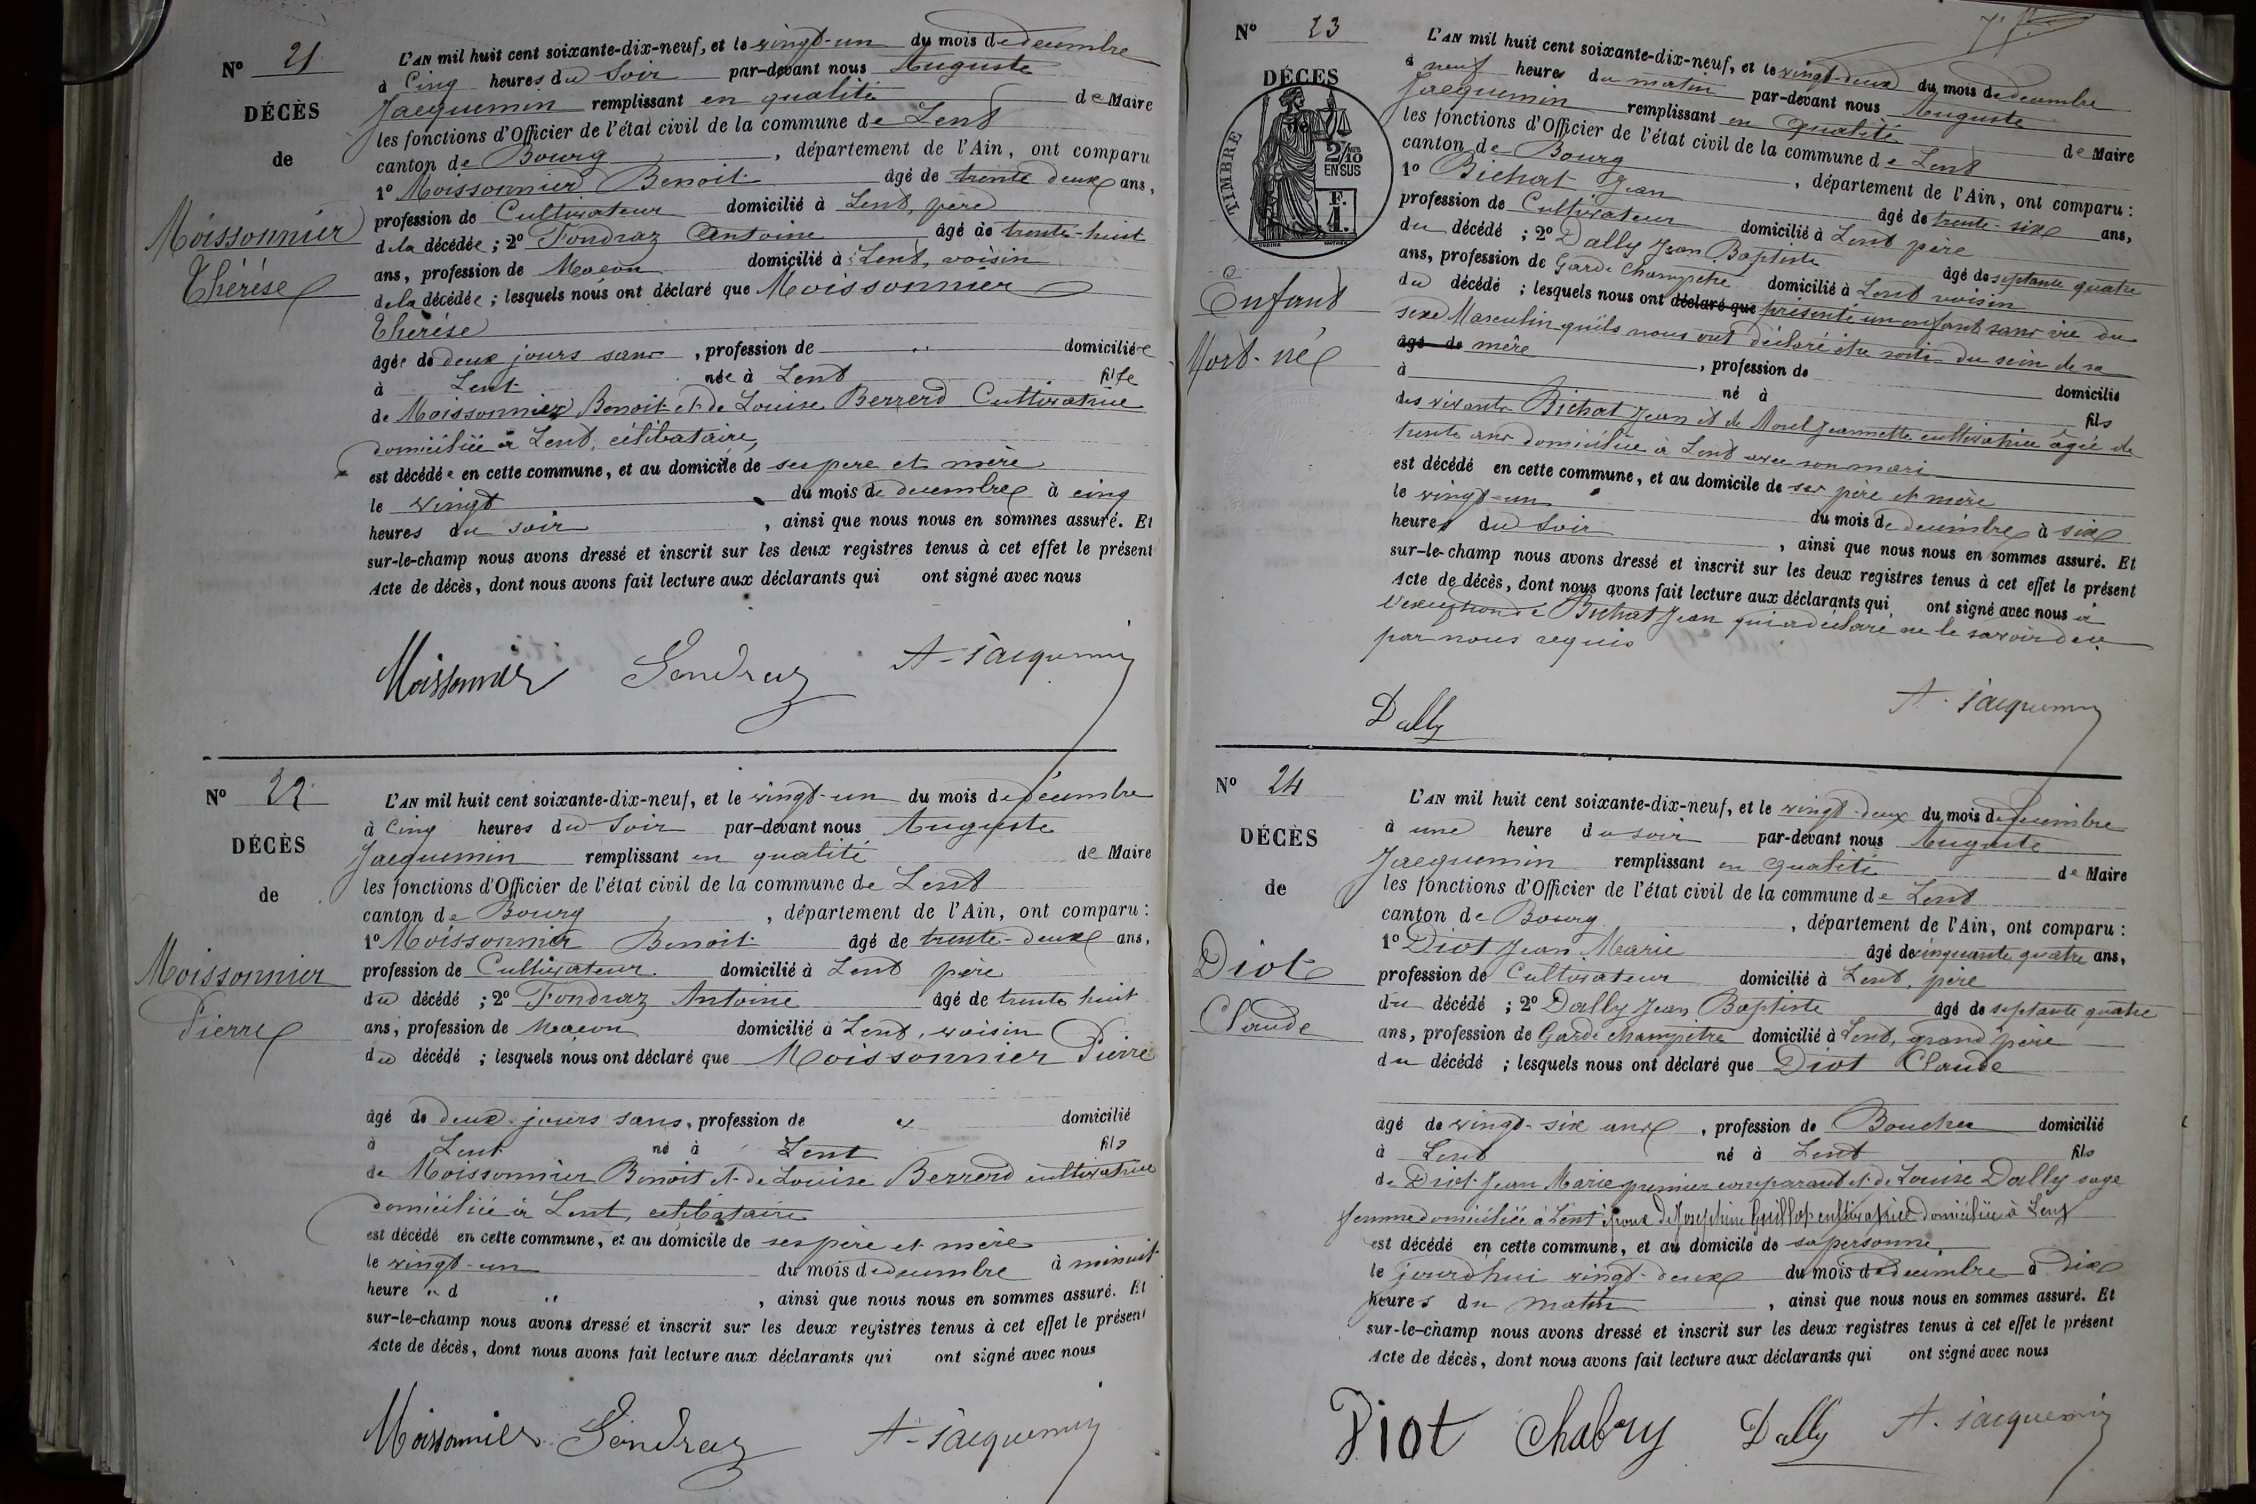 N° 21
DÉCÈS
de
Moissonnier
Thérèse
L'AN mil huit cent soixante-dix-neuf, et le vingt-un du mois de decembre
à Cinq heures du Soir par-devant nous Auguste
Jacquemin remplissant en qualité de Maire
les fonctions d'Officier de l'état civil de la commune de Lent
canton de Bourg , département de l'Ain, ont comparu
1° Moissonnier Benoit âgé de trente deux ans,
profession de Cultivateur domicilié à Lent, père
de la décédée ; 2° Fondraz Antoine âgé de trente-huit
ans, profession de Maçon domicilié à Lent, voisin
de la décédée ; lesquels nous ont déclaré que Moissonnier
Thérèse
âgée de deux jours sans , profession de " domiciliée
à Lent née à Lent fille
de Moissonnier Benoit et de Louise Berrerd Cultivatrice
domiciliée à Lent, célibataire,
est décédée en cette commune, et au domicile de ses pere et mère
le vingt du mois de decembre à cinq
heures du soir , ainsi que nous nous en sommes assuré. Et
sur-le-champ nous avons dressé et inscrit sur les deux registres tenus à cet effet le présent
Acte de décès, dont nous avons fait lecture aux déclarants qui ont signé avec nous
Moissonnier Gendraz A. Jacquemin
N° 22
DÉCÈS
de
Moissonnier
Pierre
L'AN mil huit cent soixante-dix-neuf, et le vingt-un du mois de décembre
à Cinq heures du Soir par-devant nous Auguste
Jacquemin remplissant en qualité de Maire
les fonctions d'Officier de l'état civil de la commune de Lent
canton de Bourg , département de l'Ain, ont comparu :
1° Moissonnier Benoit âgé de trente-deux ans,
profession de Cultivateur domicilié à Lent père
du décédé ; 2° Fondraz Antoine âgé de trente huit
ans, profession de Maçon domicilié à Lent, voisin
du décédé ; lesquels nous ont déclaré que Moissonnier Pierre
âgé de deux jours sans, profession de " domicilié
à Lent né à Lent fils
de Moissonnier Benoit et de Louise Berrerd cultivatrice
domiciliée à Lent, célibataire
est décédé en cette commune, et au domicile de ses père et mère
le vingt-un du mois de decembre à minuit
heure " d " , ainsi que nous nous en sommes assuré. Et
sur-le-champ nous avons dressé et inscrit sur les deux registres tenus à cet effet le présent
Acte de décès, dont nous avons fait lecture aux déclarants qui ont signé avec nous
Moissonnier Gendraz A. Jacquemin
N° 23
DÉCES
de
TIMBRE
2/10
EN SUS
F.
1.
Enfant
Mort-né
L'AN mil huit cent soixante-dix-neuf, et le vingt-deux du mois de decembre
à neuf heures du matin par-devant nous Auguste
Jacquemin remplissant en qualité de Maire
les fonctions d'Officier de l'état civil de la commune de Lent
canton de Bourg , département de l'Ain, ont comparu :
1° Bichat Jean âgé de trente-six ans,
profession de Cultivateur domicilié à Lent père
du décédé ; 2° Dally Jean Baptiste âgé de septante quatre
ans, profession de Garde Champetre domicilié à Lent voisin
du décédé ; lesquels nous ont déclaré que présenté un enfant sans vie du
sexe Masculin qu'ils nous ont déclaré être sorti du sein de sa
âgé de mère , profession de domicilié
à né à fils
des vivants Bichat Jean et de Morel Jeannette cultivatrice âgée de
trente ans domiciliée à Lent avec son mari
est décédé en cette commune, et au domicile de ses père et mère
le vingt-un du mois de decembre à six
heures du Soir , ainsi que nous nous en sommes assuré. Et
sur-le-champ nous avons dressé et inscrit sur les deux registres tenus à cet effet le présent
Acte de décès, dont nous avons fait lecture aux déclarants qui ont signé avec nous à
l'exception de Bichat Jean qui a déclaré ne le savoir de ce
par nous requis
Dally A. Jacquemin
N° 24
DÉCÈS
de
Diot
Claude
L'AN mil huit cent soixante-dix-neuf, et le vingt-deux du mois de decembre
à une heure du soir par-devant nous Auguste
Jacquemin remplissant en qualité de Maire
les fonctions d'Officier de l'état civil de la commune de Lent
canton de Bourg , département de l'Ain, ont comparu :
1° Diot Jean Marie âgé de cinquante quatre ans,
profession de Cultivateur domicilié à Lent, père
du décédé ; 2° Dally Jean Baptiste âgé de septante quatre
ans, profession de Garde champetre domicilié à Lent, grand père
du décédé ; lesquels nous ont déclaré que Diot Claude
âgé de vingt-six ans , profession de Boucher domicilié
à Lent né à Lent fils
de Diot Jean Marie premier comparant et de Louise Dally sage
femme domiciliée à Lent époux de Joséphine Guillot cultivatrice domiciliée à Lent
est décédé en cette commune, et au domicile de sa personne
le jourd'hui vingt-deux du mois de decembre à dix
heures du matin , ainsi que nous nous en sommes assuré. Et
sur-le-champ nous avons dressé et inscrit sur les deux registres tenus à cet effet le présent
Acte de décès, dont nous avons fait lecture aux déclarants qui ont signé avec nous
Diot Chabry Dally A. Jacquemin